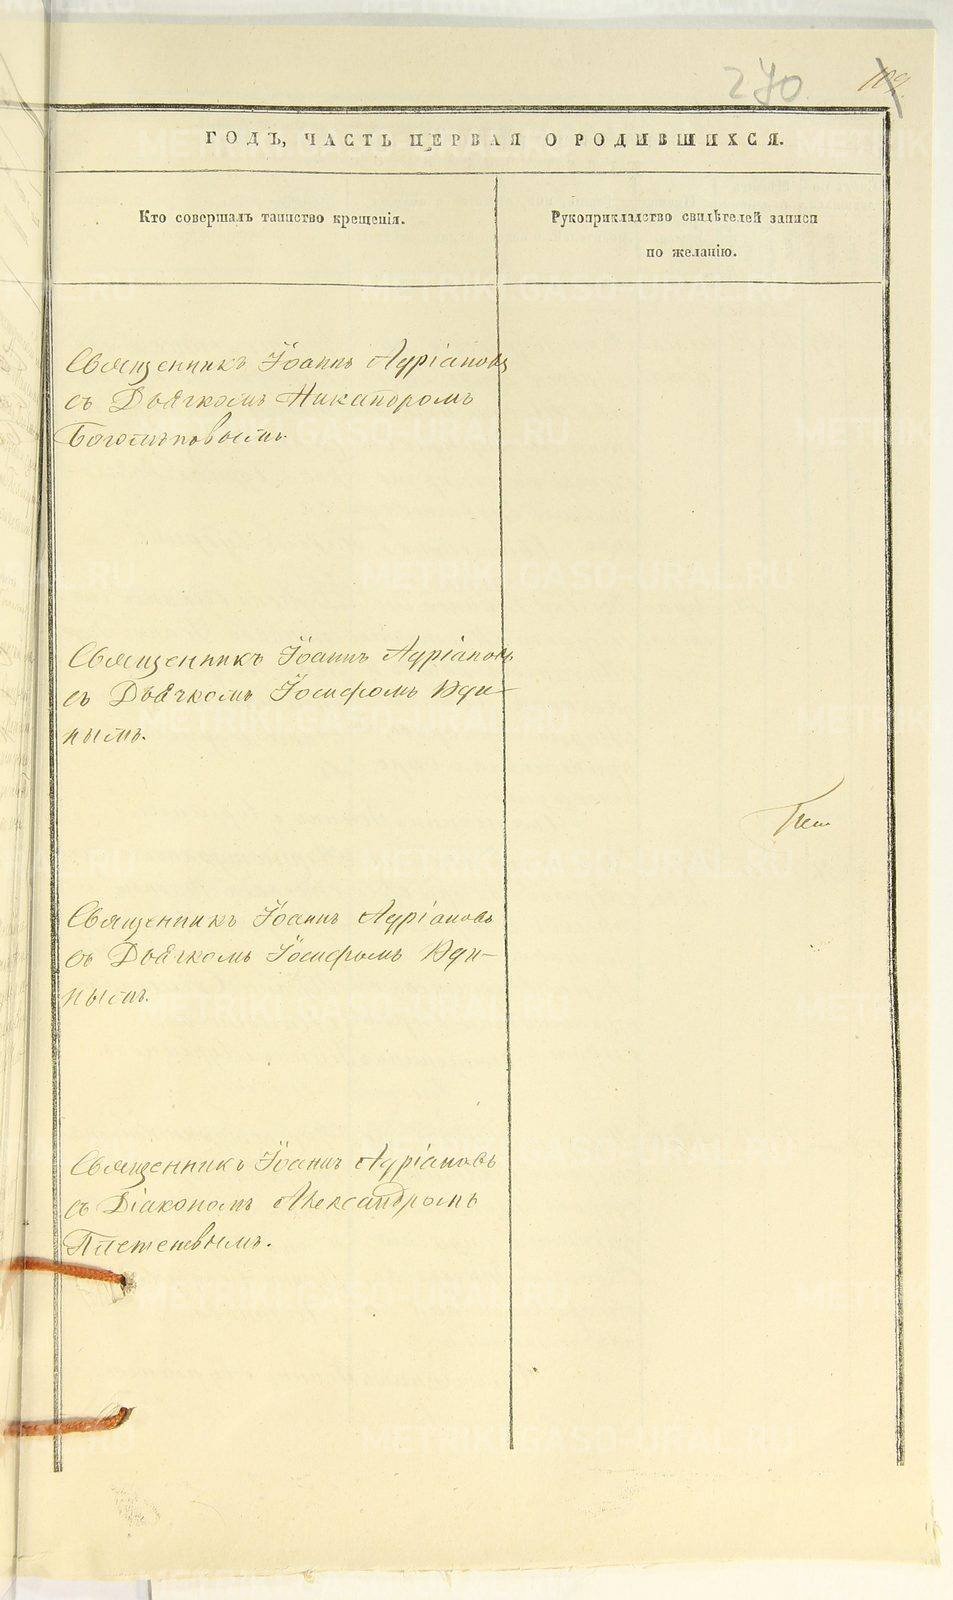 270
109
ГОДЪ, ЧАСТЬ ПЕРВАЯ О РОДИВШИХСЯ.
Кто совершалъ таинство крещенія.
Рукоприкладство свидѣтелей записи
по желанію.
Священникъ Іоаннъ Адріановъ
съ Дьячкомъ Никаноромъ
Священникъ Іоаннъ Адріановъ
съ Дьячкомъ Іосифомъ Юди-
нымъ.
Священникъ Іоаннъ Адріановъ
съ Дьячкомъ Іосифомъ Юди-
нымъ.
Священникъ Іоаннъ Адріановъ
съ Діакономъ Александромъ
Плетеневымъ.
METRIKI.GASO-URAL.RU